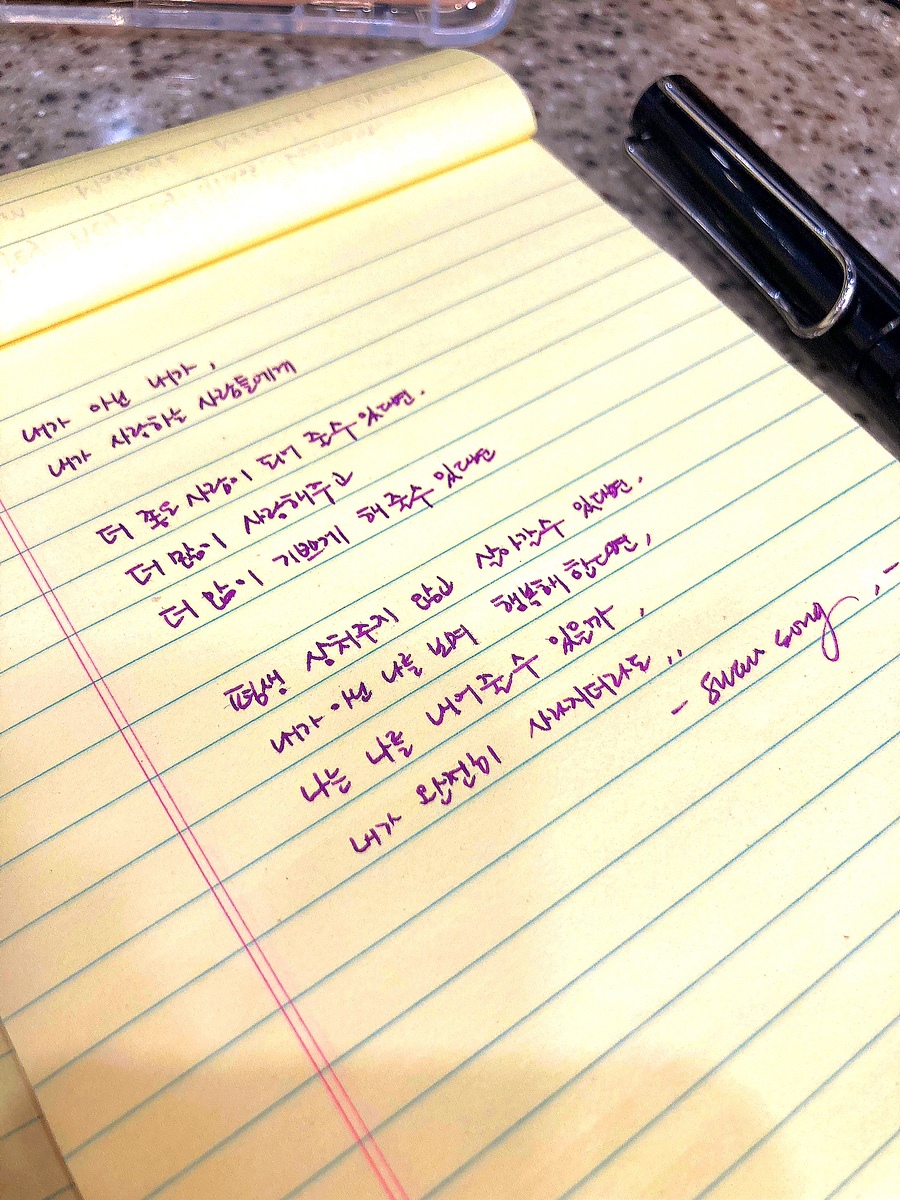 내가 아닌 내가,
내가 사랑하는 사람들에게
더 좋은 사람이 되어 줄수 있다면.
더 많이 사랑해주고
더 많이 기쁘게 해 줄수 있다면
평생 상처주지 않고 살아갈수 있다면.
내가 아닌 나를 보며 행복해 한다면,
나는 나를 내어줄수 있을까,
내가 완전히 사라지더라도..
- swan song . -